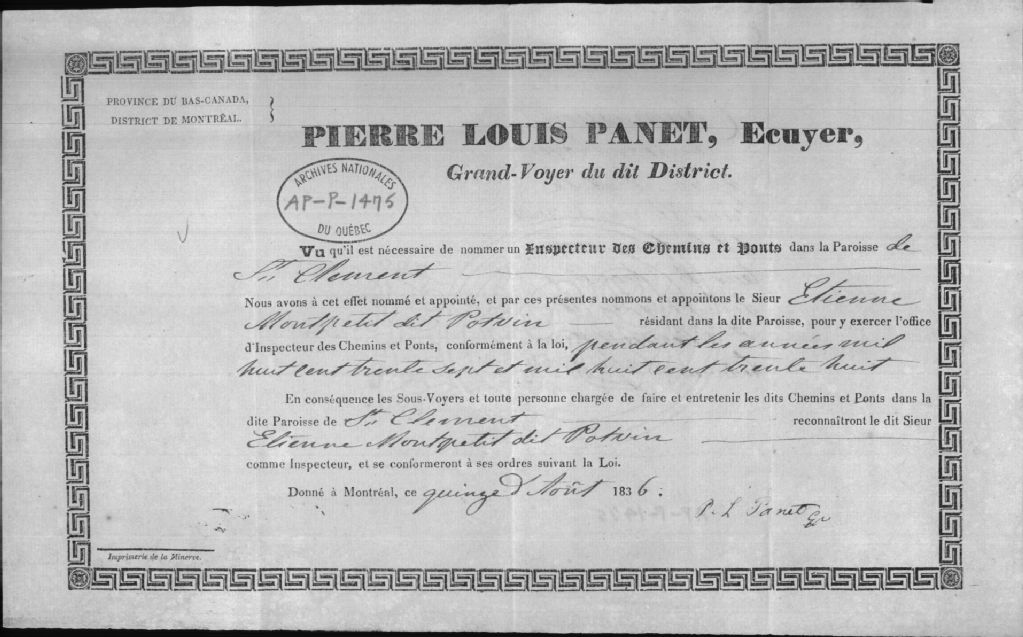 PROVINCE DU BAS-CANADA,
DISTRICT DE MONTRÉAL.
PIERRE LOUIS PANET, Ecuyer,
Grand-Voyer du dit District.
ARCHIVES NATIONALES
AP-P-1475
DU QUÉBEC
Vu qu'il est nécessaire de nommer un Inspecteur des Chemins et Ponts dans la Paroisse de
St. Clement
Nous avons à cet effet nommé et appointé, et par ces présentes nommons et appointons le Sieur Etienne
Montpetit dit Potvin résidant dans la dite Paroisse, pour y exercer l'office
d'Inspecteur des Chemins et Ponts, conformément à la loi, pendant les années mil
huit cent trente sept et mil huit cent trente huit
En conséquence les Sous-Voyers et toute personne chargée de faire et entretenir les dits Chemins et Ponts dans la
dite Paroisse de St. Clement reconnaîtront le dit Sieur
Etienne Montpetit dit Potvin
comme Inspecteur, et se conformeront à ses ordres suivant la Loi.
Donné à Montréal, ce quinze d'Août 1836.
P. L. Panet
Imprimerie de la Minerve.